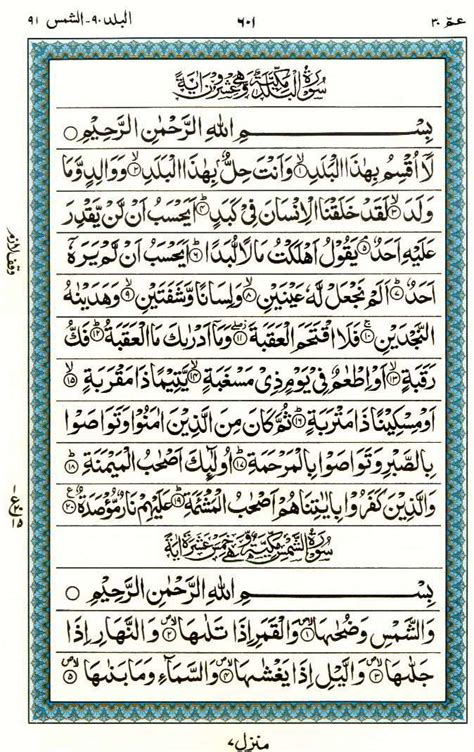 عمّ ٣٠ ٦٠١ البلد ٩٠-الشمس ٩١
سُوْرَةُ الْبَلَدِ مَكِّيَّةٌ وَّهِيَ عِشْرُوْنَ اٰيَةً
بِسْمِ اللّٰهِ الرَّحْمٰنِ الرَّحِيْمِ ○
لَاۤ اُقْسِمُ بِهٰذَا الْبَلَدِ ۙ۝١ وَاَنْتَ حِلٌّۢ بِهٰذَا الْبَلَدِ ۙ۝٢ وَوَالِدٍ وَّمَا
وَلَدَ ۙ۝٣ لَقَدْ خَلَقْنَا الْاِنْسَانَ فِيْ كَبَدٍ ؕ۝٤ اَيَحْسَبُ اَنْ لَّنْ يَّقْدِرَ
عَلَيْهِ اَحَدٌ ۘ۝٥ يَقُوْلُ اَهْلَكْتُ مَالًا لُّبَدًا ؕ۝٦ اَيَحْسَبُ اَنْ لَّمْ يَرَهٗۤ
اَحَدٌ ؕ۝٧ اَلَمْ نَجْعَلْ لَّهٗ عَيْنَيْنِ ۙ۝٨ وَلِسَانًا وَّشَفَتَيْنِ ۙ۝٩ وَهَدَيْنٰهُ
النَّجْدَيْنِ ۚ۝١٠ فَلَا اقْتَحَمَ الْعَقَبَةَ ؗۖ۝١١ وَمَاۤ اَدْرٰىكَ مَا الْعَقَبَةُ ؕ۝١٢ فَكُّ
رَقَبَةٍ ۙ۝١٣ اَوْ اِطْعٰمٌ فِيْ يَوْمٍ ذِيْ مَسْغَبَةٍ ۙ۝١٤ يَّتِيْمًا ذَا مَقْرَبَةٍ ۙ۝١٥
اَوْ مِسْكِيْنًا ذَا مَتْرَبَةٍ ؕ۝١٦ ثُمَّ كَانَ مِنَ الَّذِيْنَ اٰمَنُوْا وَتَوَاصَوْا
بِالصَّبْرِ وَتَوَاصَوْا بِالْمَرْحَمَةِ ؕ۝١٧ اُولٰٓئِكَ اَصْحٰبُ الْمَيْمَنَةِ ؕ۝١٨
وَالَّذِيْنَ كَفَرُوْا بِاٰيٰتِنَا هُمْ اَصْحٰبُ الْمَشْـَٔمَةِ ؕ۝١٩ عَلَيْهِمْ نَارٌ مُّؤْصَدَةٌ ۠۝٢٠
سُوْرَةُ الشَّمْسِ مَكِّيَّةٌ وَّهِيَ خَمْسَ عَشْرَةَ اٰيَةً
بِسْمِ اللّٰهِ الرَّحْمٰنِ الرَّحِيْمِ ○
وَالشَّمْسِ وَضُحٰىهَا ۙ۝١ وَالْقَمَرِ اِذَا تَلٰىهَا ۙ۝٢ وَالنَّهَارِ اِذَا
جَلّٰىهَا ۙ۝٣ وَالَّيْلِ اِذَا يَغْشٰىهَا ۙ۝٤ وَالسَّمَآءِ وَمَا بَنٰىهَا ۙ۝٥
وقف لازم
منزل ٧